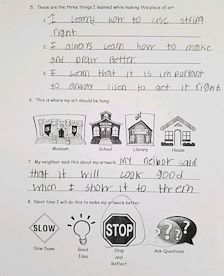 5. These are the three things I learned while making this piece of art
1. I learnd how to use string
right
2. I always learn how to make
and draw better
3. I learn that it is important
to alway lisen to get it right
6. This is where my art should be hung:
Museum School Library House
7. My neighbor said this about my artwork MY neibor said
that it will look good
when I show it to them
8. Next time I will do this to make my artwork better
SLOW STOP
Slow Down Good Idea Stop and Reflect Ask Questions